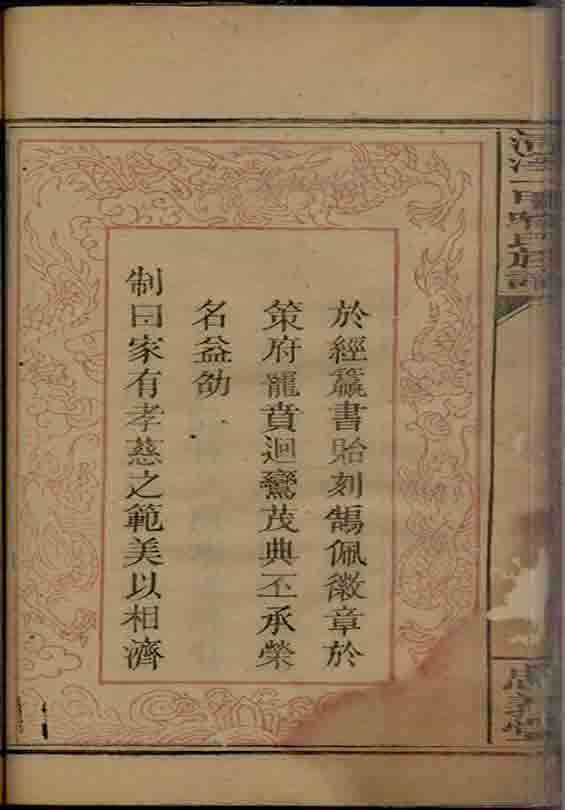 於經籯書貽刻鵠佩徽章於
策府寵賁迴鸞茂典丕承榮
名益劭
制曰家有孝慈之範美以相濟